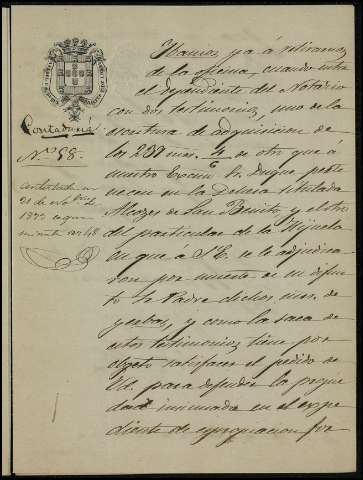 Contaduría
Nº 58.
contestada en
21 de
1877
Vamos ya á retirarnos
de la oficina, cuando entra
el dependiente del Notário
con dos testimonios, uno de la
escritura de adquisicion de
los 230 mrs. y de otr que á
nuestro Excmo Sr. Duque perte
necen en la Dehesa titulada
de San Benito, y el otro
del particular de la Hijuela
en que á S. E. se le adjudica
ron por muerte de su difun
to Sr. Padre dichos mrs. de
yerbas, y como la saca de
estos testimonios tiene por
objeto satisfacer el pedido de
Vd. para defender la propie
dad inmuada en el expe
diente de expropiacion for